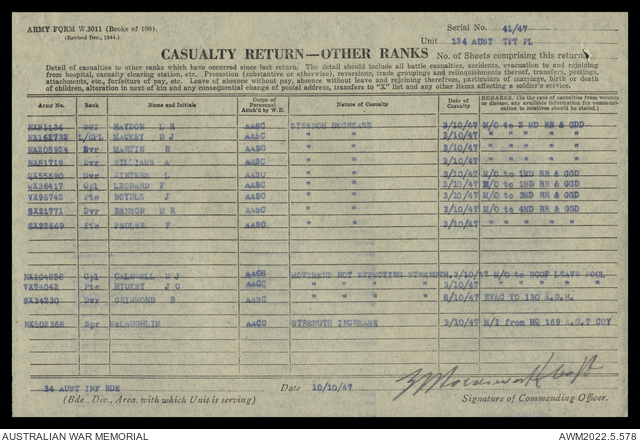 ARMY FORM W.3011 (Books of 100).
(Revised Dec., 1944.)
Serial No. 41/47
Unit 124 AUST TPT PL
CASUALTY RETURN—OTHER RANKS
No. of Sheets comprising this return
Detail of casualties to other ranks which have occurred since last return. The detail should include all battle casualties, accidents, evacuation to and rejoining
from hospital, casualty clearing station, etc. Promotion (substantive or otherwise), reversions, trade groupings and relinquishments thereof, transfers, postings,
attachments, etc., forfeiture of pay, etc. Leave of absence without pay, absence without leave and rejoining therefrom, particulars of marriage, birth or death
of children, alteration in next of kin and any consequential change of postal address, transfers to "X" list and any other items affecting a soldier's service.
Army No. Rank Name and Initials Corps of Personnel Attach'd by W.E. Nature of Casualty Date of Casualty REMARKS. (In the case of casualties from wounds or disease, any available information for communication to relatives should be stated.)
SGT HAYDON L R AASC DECREASE 3/10/47 M/O to 2 MD RR & GDD
NX162732 L/CPL MACKEY D J AASC " " 3/10/47 " " " "
NX205924 Dvr MARTIN R AASC " " 3/10/47 " " " "
NX81719 Dvr WILLIAMS A AASC " " 3/10/47 " " " "
QX55690 Dvr L AASC " " 3/10/47 M/O to 1MD RR & GGD
QX36417 Cpl LEONARD F AASC " " 3/10/47 M/O to 1MD RR & GGD
VX96742 Pte J AASC " " 3/10/47 M/O to 3MD RR & GGD
SX21771 Dvr BENSON M R AASC " " 3/10/47 M/O to 4MD RR & GGD
SX22569 Pte PEDLER F AASC " " 3/10/47 " " " "
NX104858 Cpl CALDWELL D J AACC MOVEMENT NOT EFFECTING STRENGTH. 3/10/47 M/O to BCOF LEAVE POOL
VX74042 Pte HICKEY J C AACC " " " " 3/10/47 " " " "
SX34230 Dvr B AASC " " " " 8/10/47 EVAC TO 130 A.G.H.
NX502368 Spr McLAUGHLIN AACC STRENGTH INCREASE 3/10/47 M/I from HQ 169 A.G.T COY
34 AUST INF BDE
Date 10/10/47
(Bde., Div., Area, with which Unit is serving)
Signature of Commanding Officer.
AUSTRALIAN WAR MEMORIAL
AWM2022.5.578